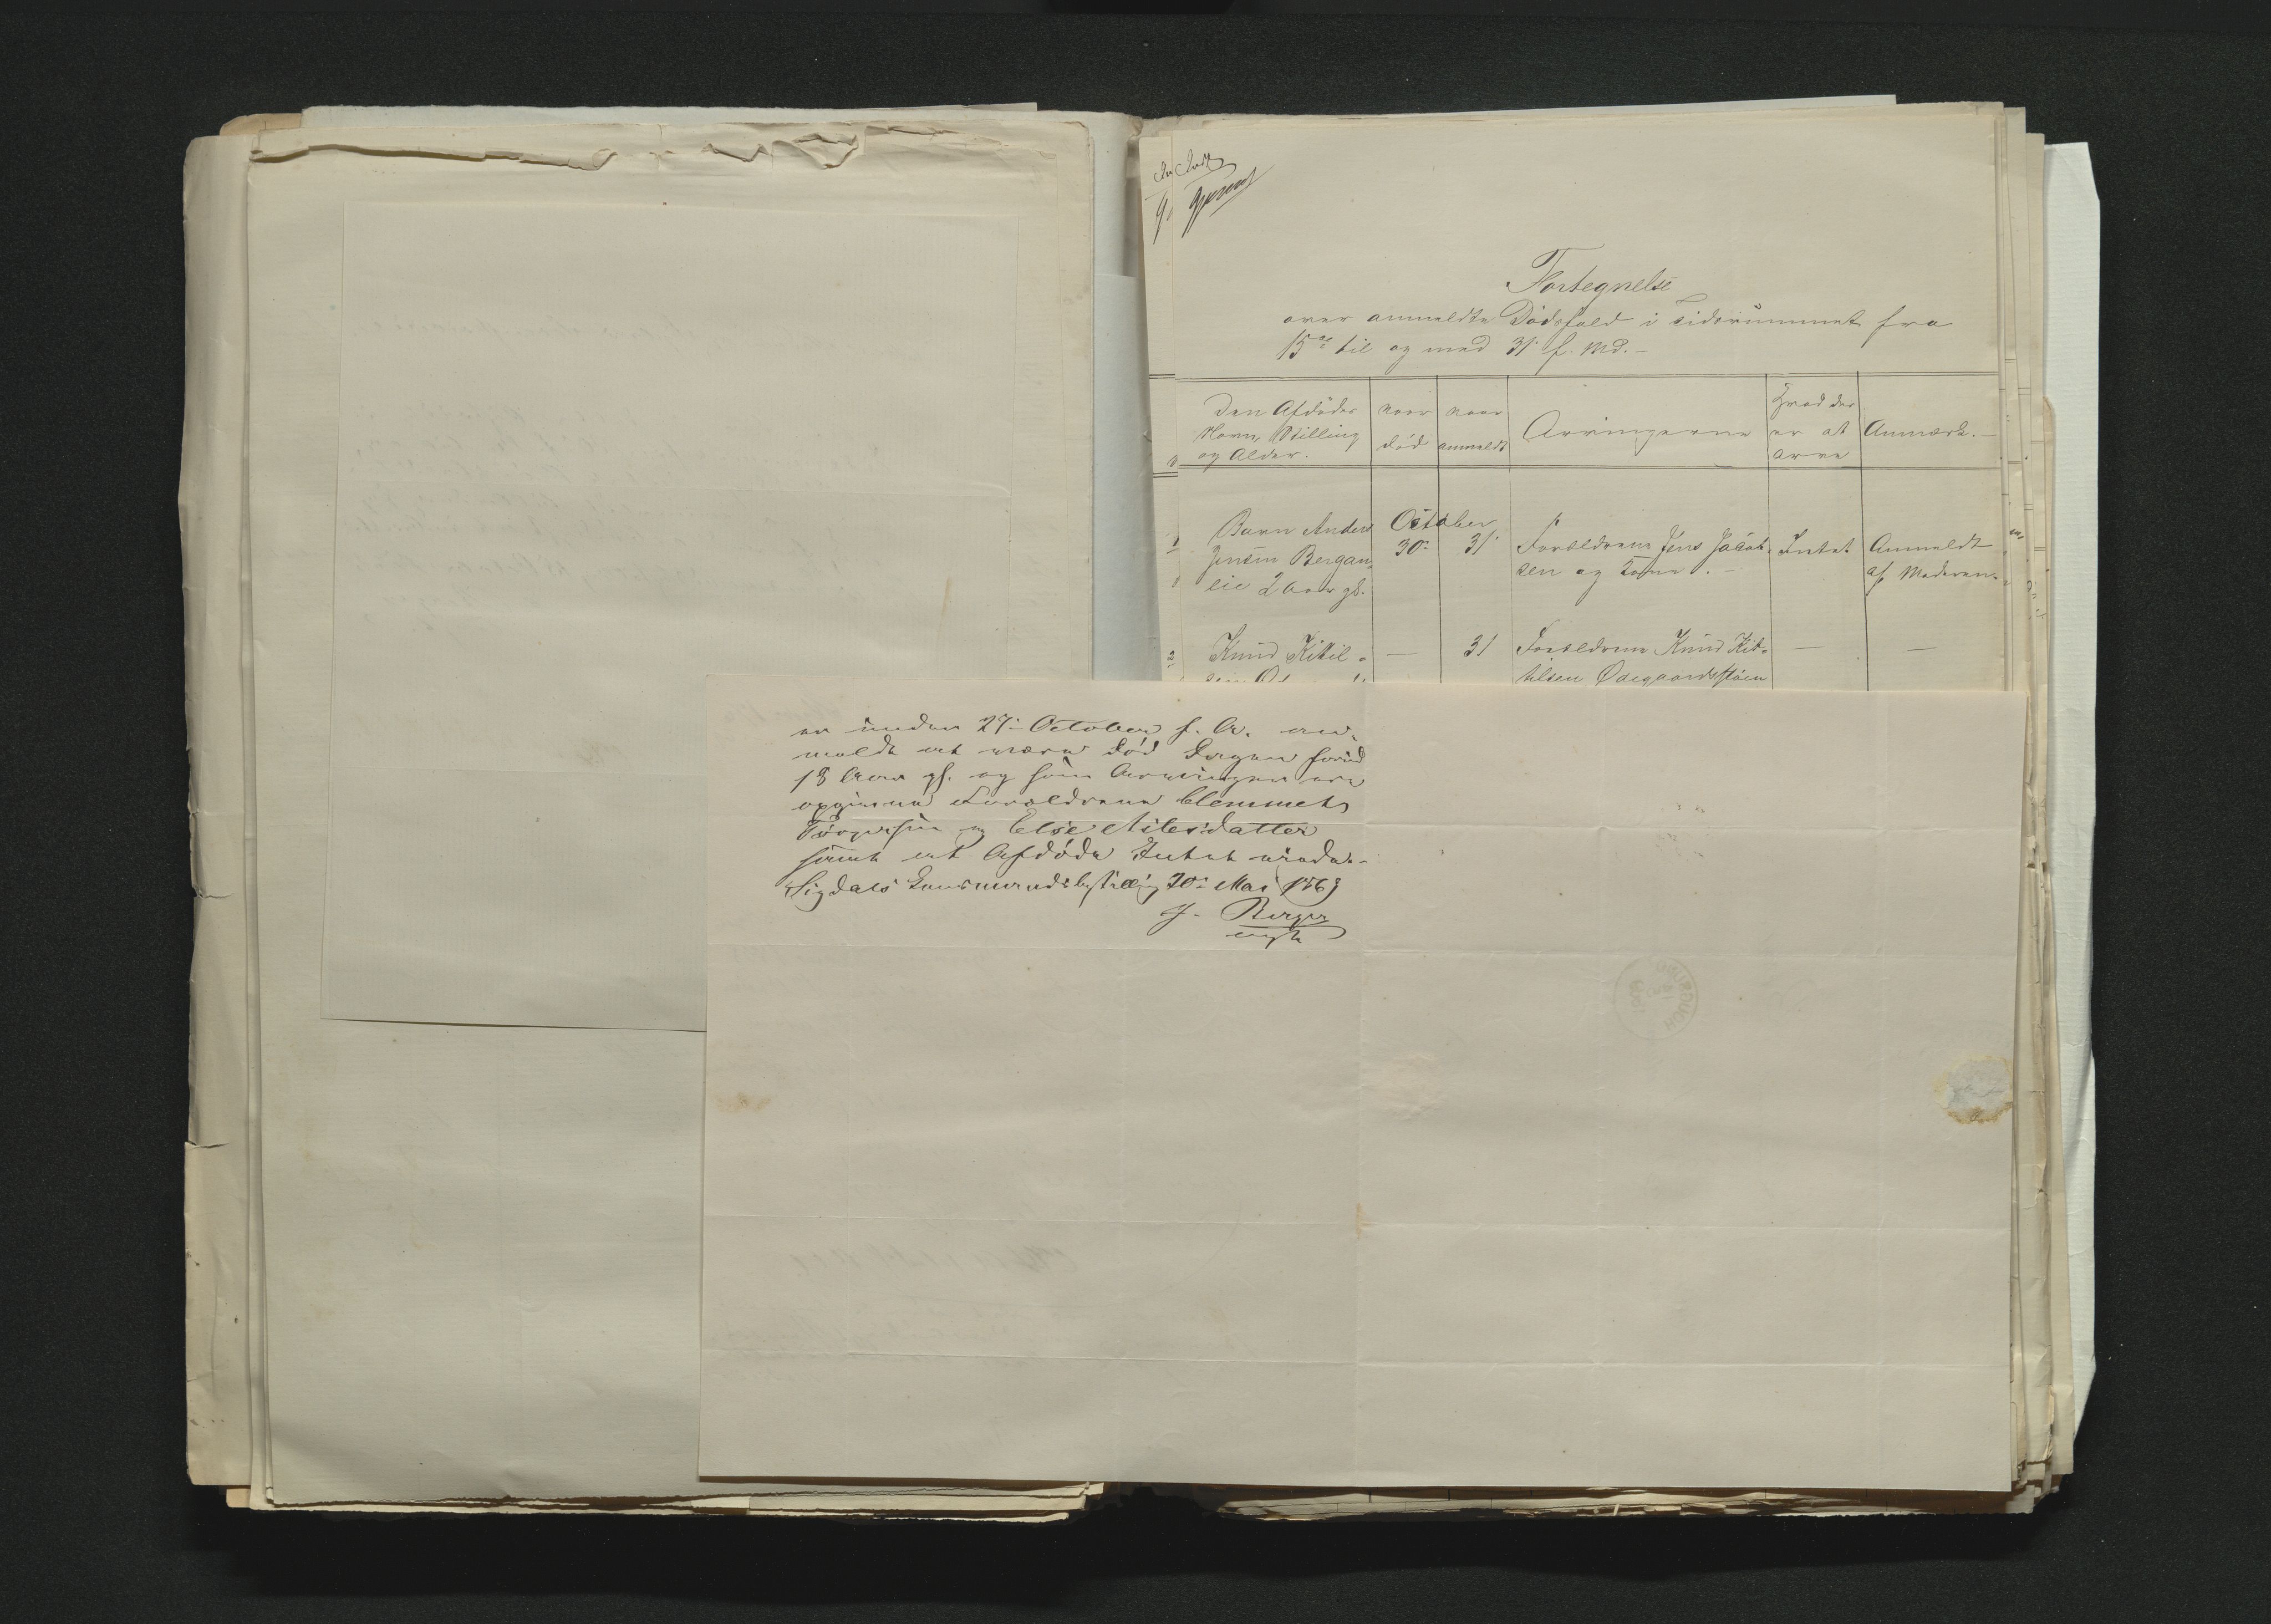 Fortegnelse
over anmeldte Dödsfald i Tidsrummet fra
15de til og med 31. f. Md. –
Den Afdödes
Navn, Stilling
og Alder.
naar
död
naar
anmeldt
Arvingerne
Hvad der
er at
arve
Anmærk. –
1
Barn Anders
Jensen Bergan-
lie 2 Aar gl.
October
30te
31.
Forældrene Jens Jacob-
sen og Kone. –
Intet
Anmeldt
af Moderen.
2
Knud Kittil-
—
31
Forældrene Knud Kit-
tilsen Ødegaardsstøen
—
—
er under 27de October f. A. an-
meldt at være død Dagen forud
18 Aar gl. og som Arvinger ere
opgivne Forældrene Clemmet
Torgersen og Else Nilsdatter
samt at Afdøde Intet eiede. –
Sigdals Lensmandsbestilling 30te Mai 1869
J. Berger